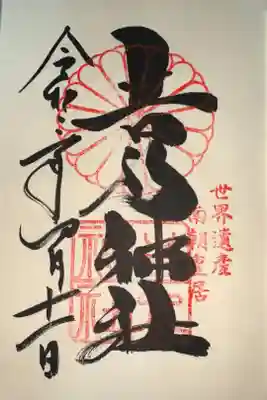 世界遺産
南朝皇居
吉水神社
令和二年月十一日